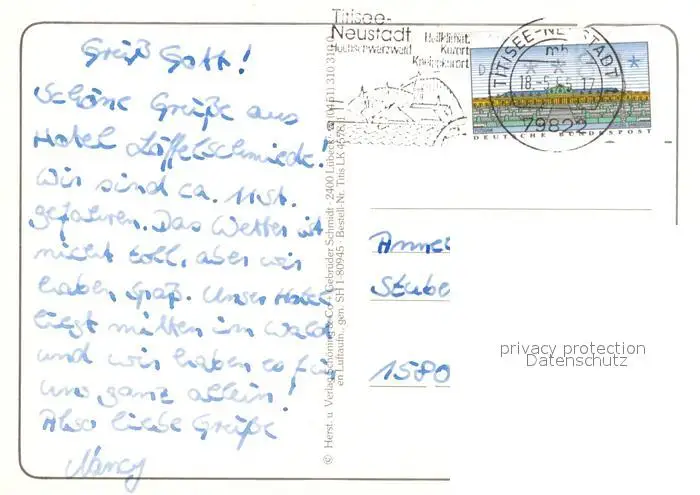 Grüß Gott!
Schöne Grüße aus
Hotel Löffelschmiede!
Wir sind ca. 11 St.
gefahren. Das Wetter ist
nicht toll, aber wir
haben Spaß. Unser Hotel
liegt mitten im Wald
und wir haben es für
uns ganz allein!
Also liebe Grüße
Nancy
© Herst. u. Verlag Schöning & Co + Gebrüder Schmidt · 2400 Lübeck
en Luftaufn., gen. SH 1-80945 · Bestell-Nr. Titis LK
Titisee-
Neustadt
Hochschwarzwald
Heilklimat.
Kurort
Kneippkurort
TITISEE-NEUSTADT
mh
79822
DEUTSCHE BUNDESPOST
Stube
1580
privacy protection
Datenschutz